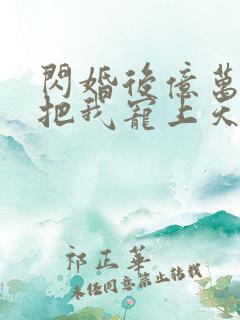 閃婚後億萬
把我寵上天
祁正華
未經同意禁止轉載